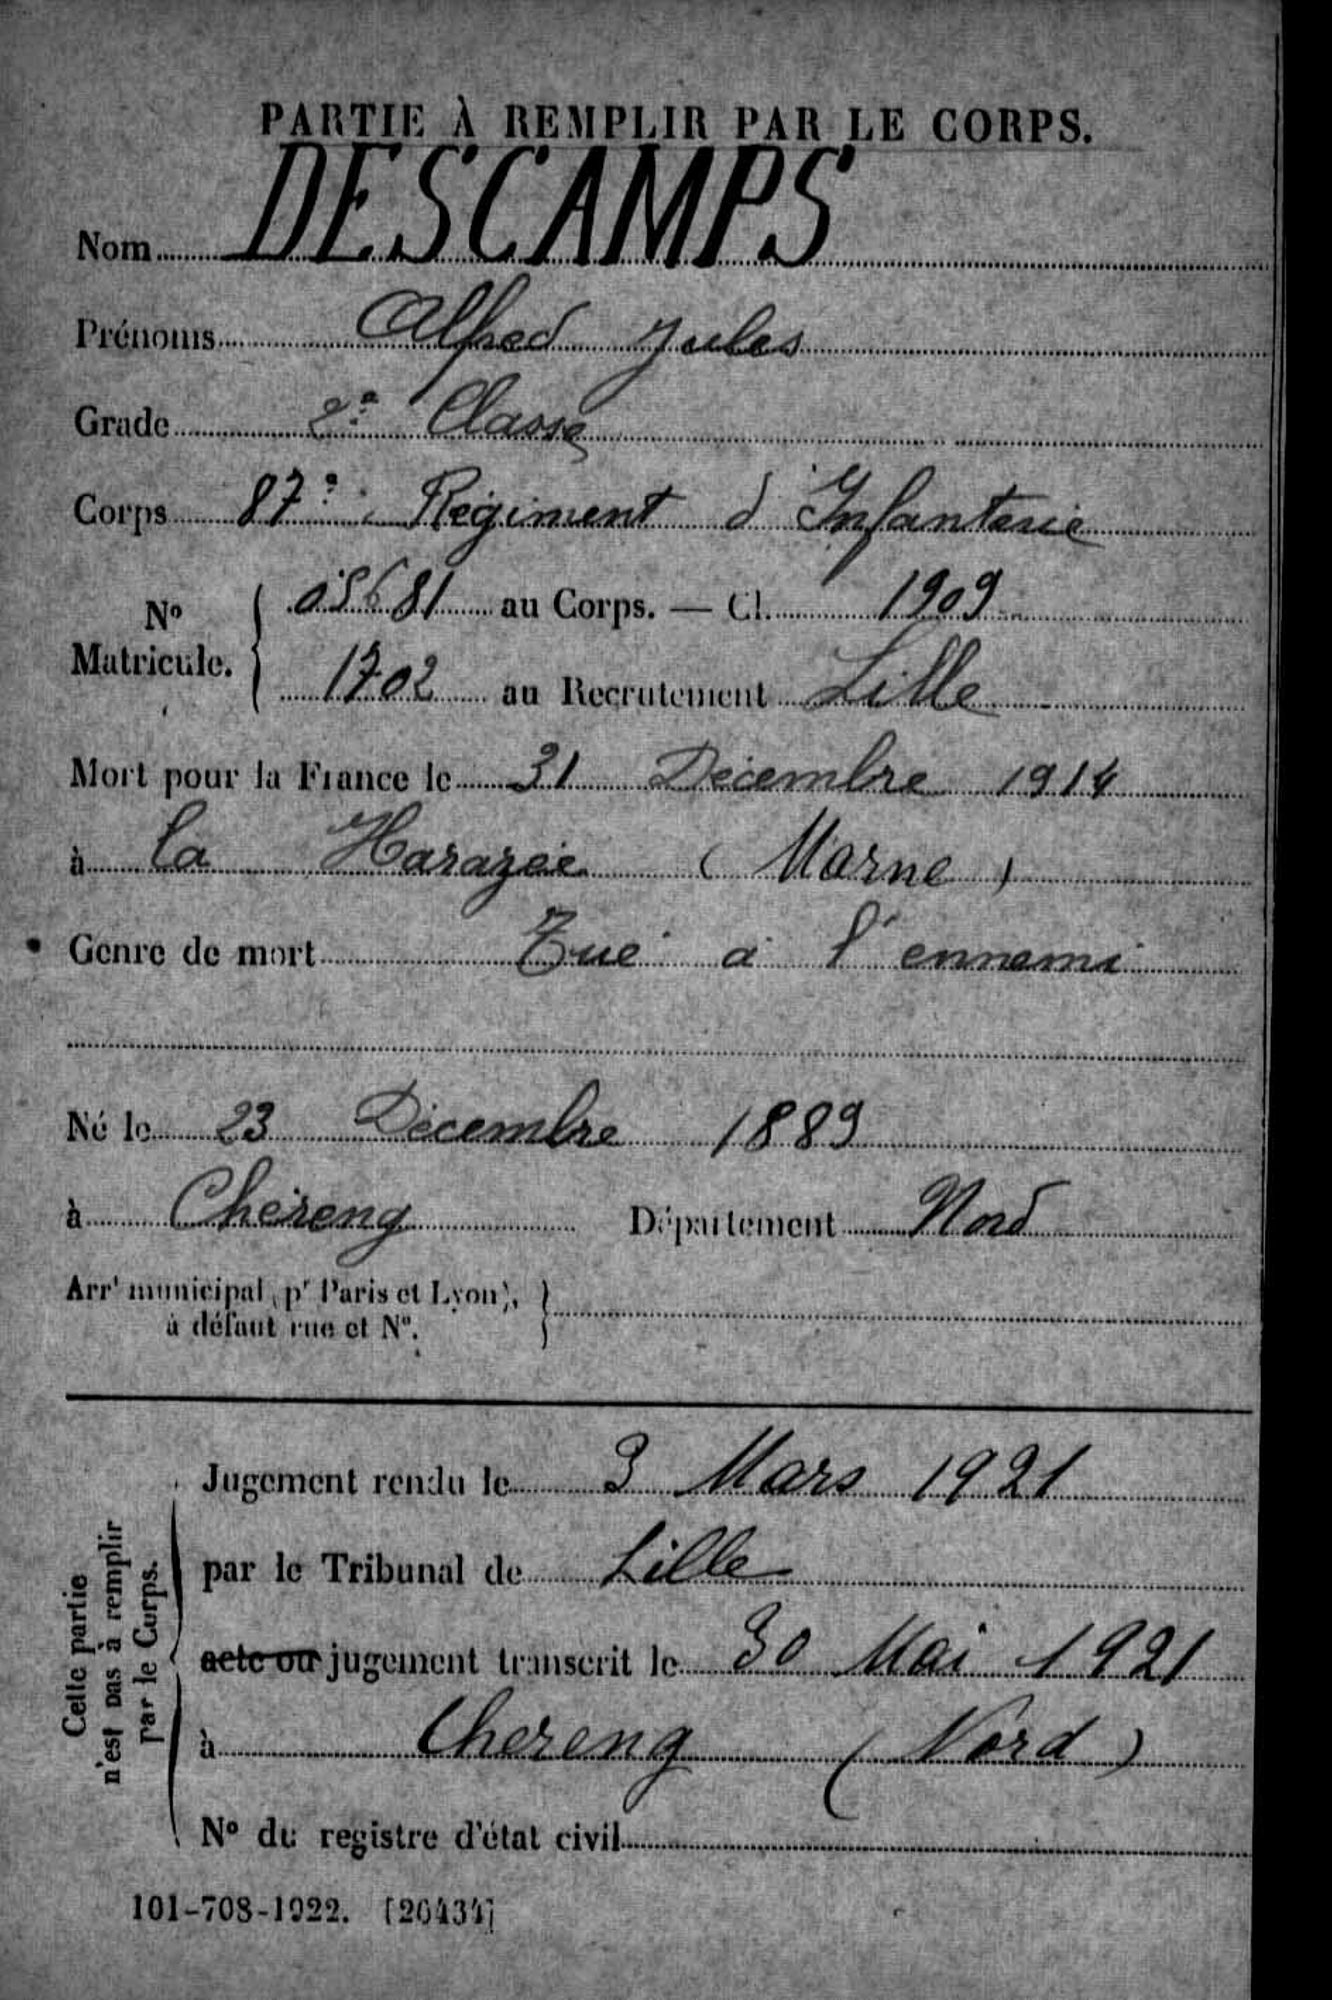 PARTIE À REMPLIR PAR LE CORPS.
Nom DESCAMPS
Prénoms Alfred Jules
Grade 2e Classe
Corps 87e Régiment d'Infanterie
No Matricule. 05681 au Corps. — Cl. 1909
1702 au Recrutement Lille
Mort pour la France le 31 Décembre 1914
à La Harazée (Marne)
Genre de mort Tué à l'ennemi
Né le 23 Décembre 1889
à Chéreng Département Nord
Arrt municipal (pr Paris et Lyon),
à défaut rue et No.
Cette partie
n'est pas à remplir
par le Corps.
Jugement rendu le 3 Mars 1921
par le Tribunal de Lille
acte ou jugement transcrit le 30 Mai 1921
à Chereng (Nord)
No du registre d'état civil
101-708-1922. [26434]